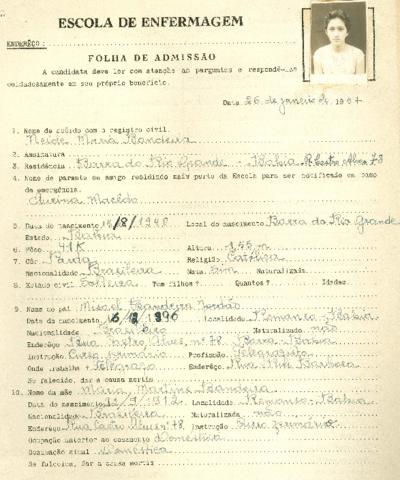 ESCOLA DE ENFERMAGEM
ENDEREÇO:
FOLHA DE ADMISSÃO
A candidata deve ler com atenção as perguntas e respondê-las
cuidadosamente em seu próprio benefício.
Data 26 de janeiro de 1967
1. Nome de acôrdo com o registro civil.
Neide Maria Bandeira
2. Assinatura
3. Residência Barra do Rio Grande - Bahia R. Castro Alves 78
4. Nome de parente ou amigo residindo mais perto da Escola para ser notificado em caso
de emergência.
Macêdo
5. Data do nascimento 15/8/1948 Local do nascimento Barra do Rio Grande
Estado Bahia
6. Pêso 41K Altura 1,55 m
7. Côr Parda Religião Católica
Nacionalidade Brasileira Nata sim Naturalizada
8. Estado civil Solteira Tem filhos? Quantos? Idades
9. Nome do pai Misael Bandeira
Data do nascimento 1896 Localidade Remanso-Bahia
Nacionalidade Brasileiro Naturalizado não
Endereço Rua Castro Alves nº 78 Barra Bahia
Instrução Curso primário Profissão Telegrafista
Onde trabalha Telégrafo Endereço Rua Rui Barbosa
Se falecido, dar a causa mortis
10. Nome da mãe Maria Martins Bandeira
Data do nascimento 12/9/1912 Localidade Remanso-Bahia
Nacionalidade Brasileira Naturalizada não
Endereço Rua Castro Alves nº 78 Instrução Curso primário
Ocupação anterior ao casamento Doméstica
Ocupação atual Doméstica
Se falecida, dar a causa mortis